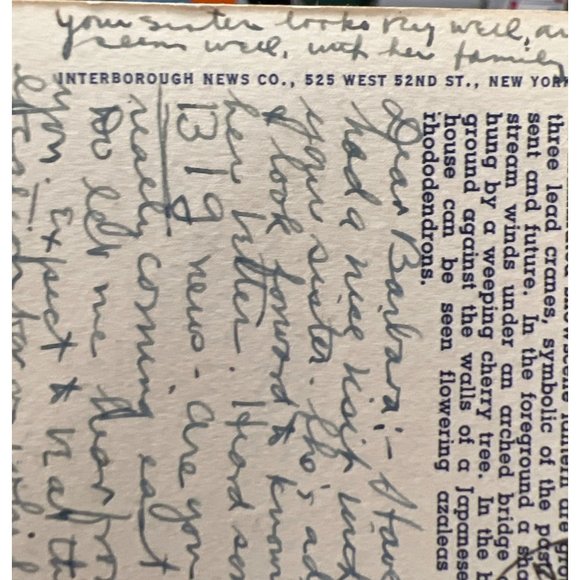 your sister looks very well, an
seems well, with her family
INTERBOROUGH NEWS CO., 525 WEST 52ND ST., NEW YOR
three lead cranes, symbolic of the past
sent and future. In the foreground a sh
stream winds under an arched bridge
hung by a weeping cherry tree. In the
ground against the walls of a Japanese
house can be seen flowering azaleas
rhododendrons.
Dear Barbara:- I have
had a nice visit with
your sister. She's ad
& look forward to know
her better. Heard som
BIG news - are you
really coming east
Do let me hear fr
you. Expect to